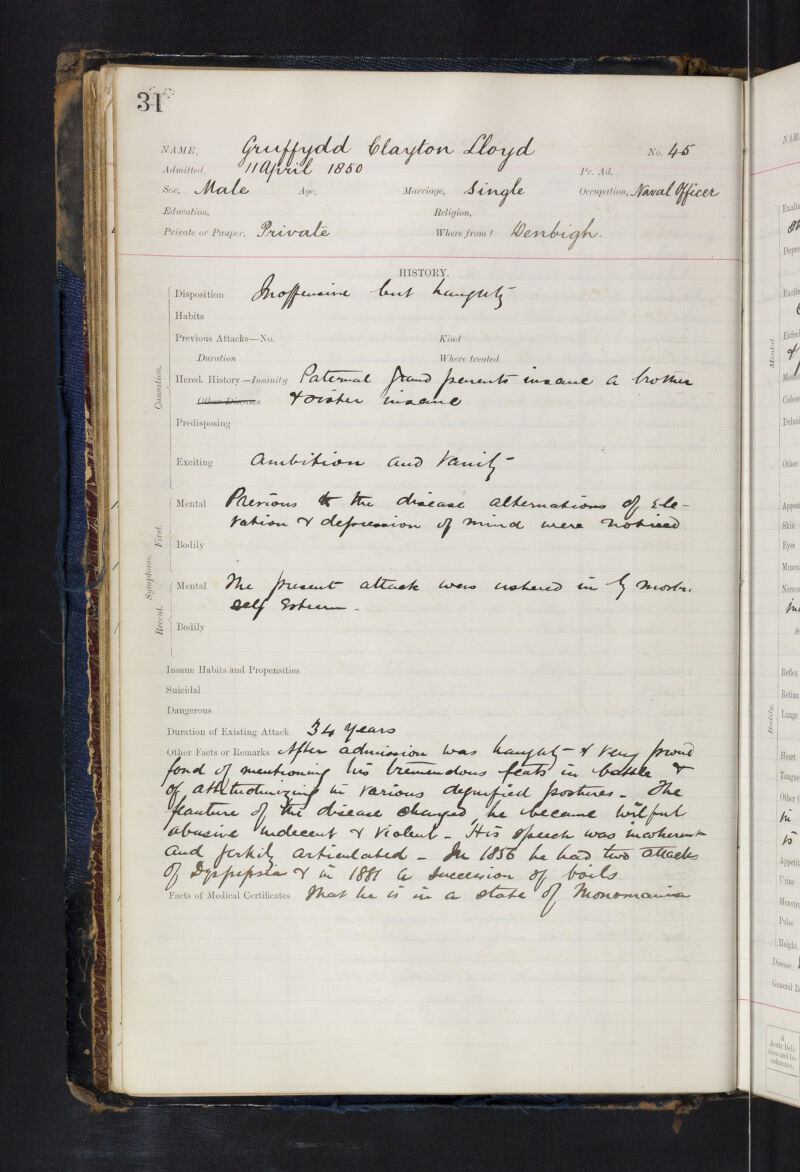 31
NAME, Gruffydd Clayton Lloyd No. 45
Admitted, 11 April 1850 Pr. Ad.
Sex, Male Age, Marriage, Single Occupation, Naval Officer
Education, Religion,
Private or Pauper, Private Where from? Denbigh.
HISTORY.
Disposition Inoffensive but haughty
Habits
Previous Attacks—No. Kind
Duration Where treated
Causation.
Hered. History—Insanity Paternal Grand parents insane a brother
Other Diseases & sister insane
Predisposing
Exciting Ambition and Vanity
Symptoms. First.
Mental Previous to the disease alternations of Ele-
vation & depression of mind were noticed
Bodily
Recent.
Mental The present attack was ushered in by morbi.
self Esteem.
Bodily
Insane Habits and Propensities
Suicidal
Dangerous
Duration of Existing Attack 34 years
Other Facts or Remarks After admission was haughty & very proud
fond of mentioning his tremendous feats in battle &
of attitudinizing in various dignified postures. The
feauture of the disease changed, he became wilful
abusive indecent & violent. His speech was incoherent
and jerkily articulated. In 1856 he had two attacks
of Dyspepsia & in 1881 a succession of boils
Facts of Medical Certificates That he is in a state of Monomania
NAM
Exalta
Depre
Excite
Enfeel
Mental.
Memo
Coher
Delusi
Other
Appea
Skin
Eyes
Muscu
Nervo
Reflex
Retina
Lungs
Bodily.
Heart
Tongue
Other
Appetit
Urine
Menstru
Pulse
Height
Disease
General
A
Acute Deli-
rium and In-
coherence.